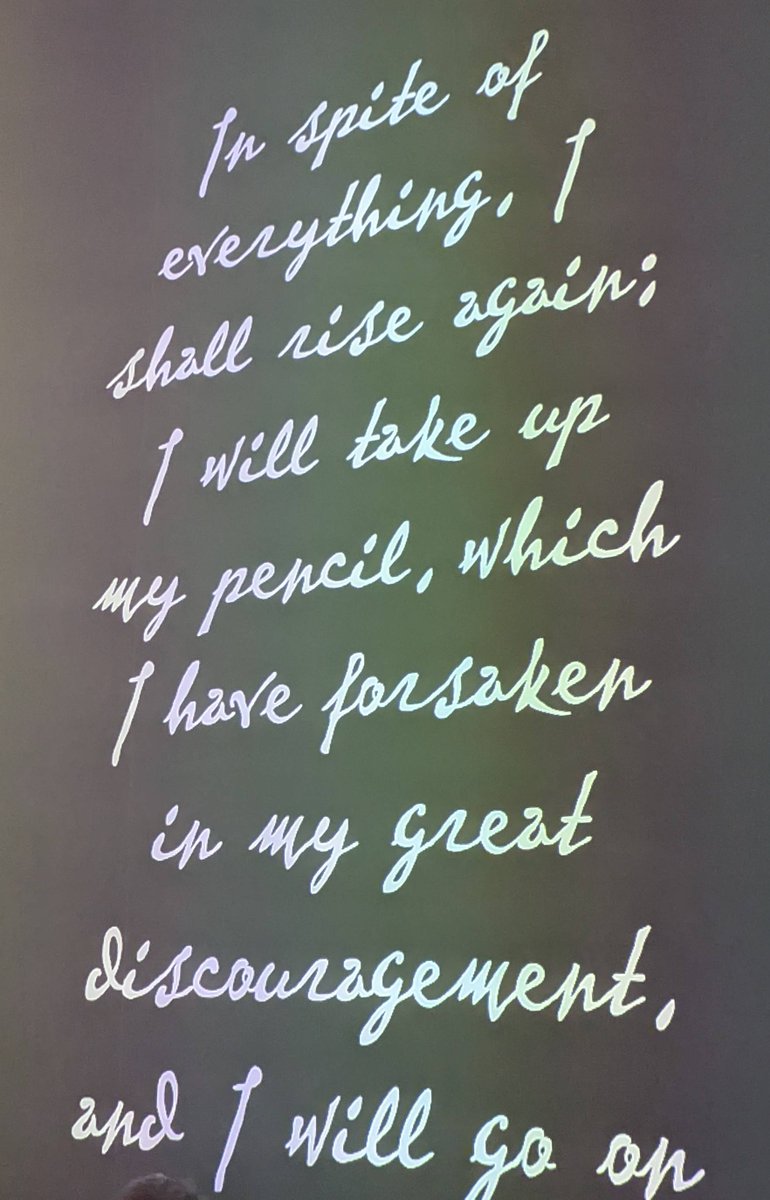 In spite of
everything, I
shall rise again;
I will take up
my pencil, which
I have forsaken
in my great
discouragement,
and I will go on